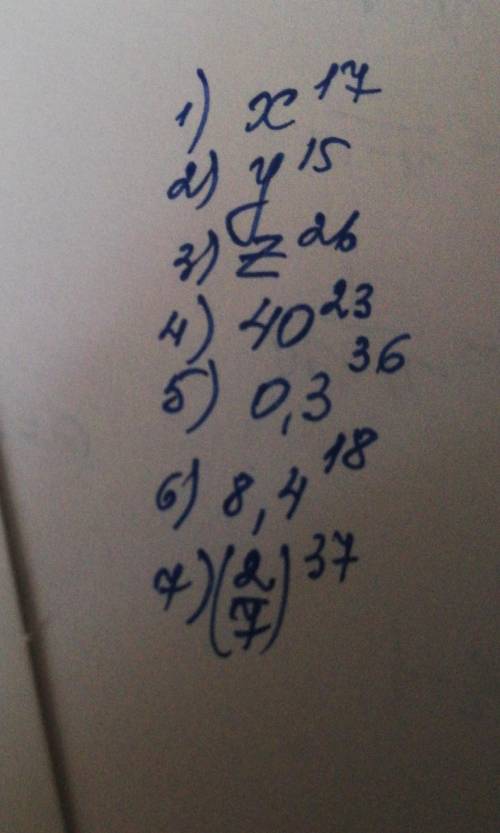 1) x¹⁷
2) y¹⁵
3) z²⁶
4) 40²³
5) 0,3³⁶
6) 8,4¹⁸
7) (2/7)³⁷